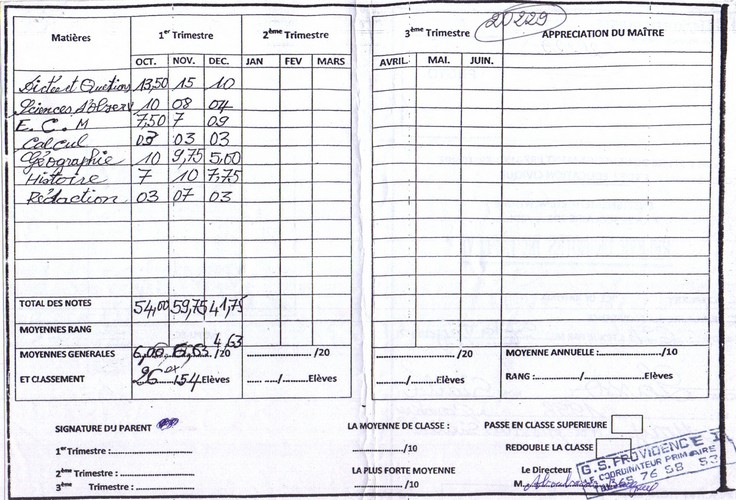 20229
Matières 1er Trimestre 2ème Trimestre 3ème Trimestre APPRECIATION DU MAÎTRE
OCT. NOV. DEC. JAN FEV MARS AVRIL MAI. JUIN.
Dictée et Questions 13,50 15 10
Sciences d'observ 10 08 04
E. C. M 7,50 7 09
Calcul 03 03 03
Géographie 10 9,75 5,00
Histoire 7 10 7,75
Rédaction 03 07 03
TOTAL DES NOTES 54,00 59,75 41,75
MOYENNES RANG 4,63
MOYENNES GENERALES 6,00 6,63 /20 ..................../20 ..................../20 MOYENNE ANNUELLE :................/10
ET CLASSEMENT 26 ex 154 Elèves ..... ..../.........Elèves ........./.........Elèves RANG :................/............Elèves
SIGNATURE DU PARENT LA MOYENNE DE CLASSE : PASSE EN CLASSE SUPERIEURE
1er Trimestre :..................... ..................../10 REDOUBLE LA CLASSE
2ème Trimestre :..................... LA PLUS FORTE MOYENNE Le Directeur
3ème Trimestre :..................... ..................../10 M.
G.S. PROVIDENCE I
LE COORDINATEUR PRIMAIRE
76 58 53